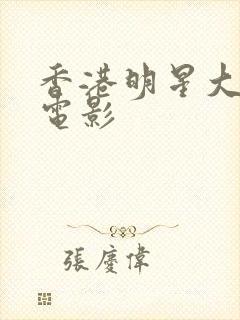 香港明星大
電影
張慶偉